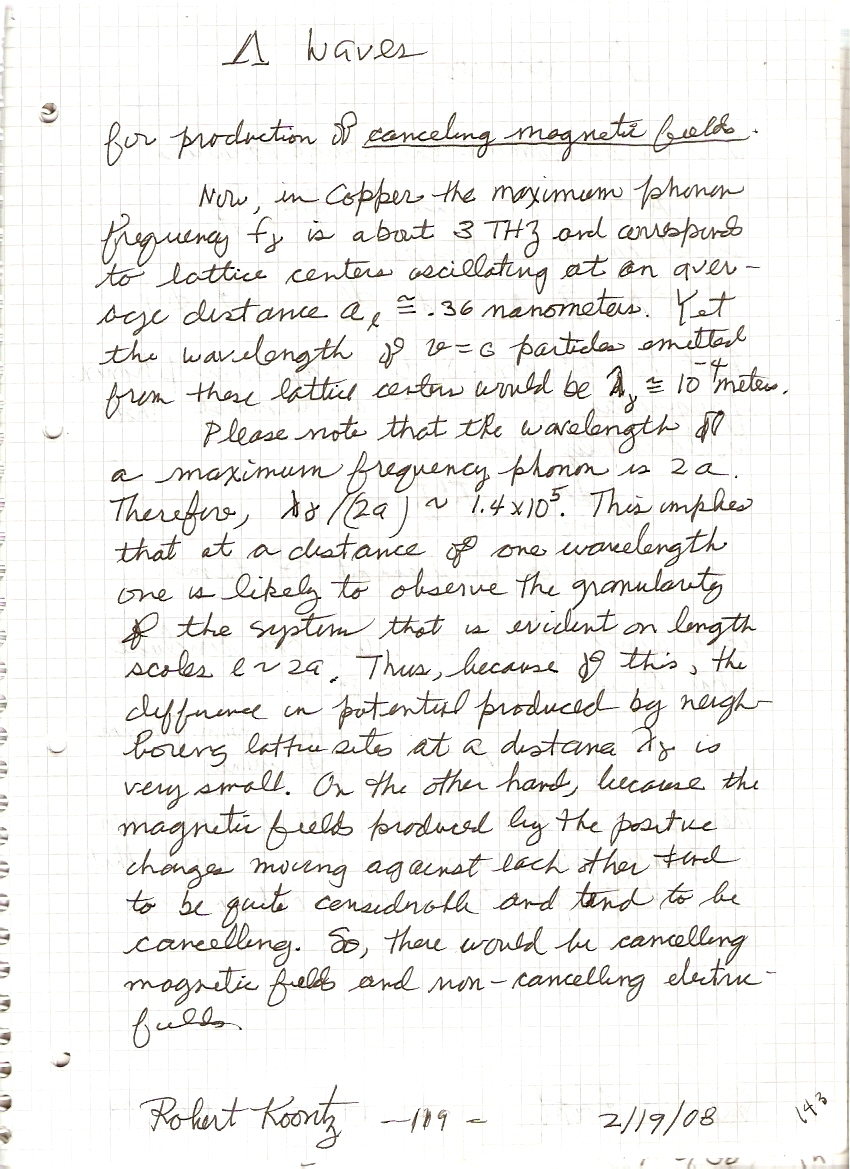 Λ Waves
for production of canceling magnetic fields.
Now, in Copper the maximum phonon
frequency fγ is about 3 THz and corresponds
to lattice centers oscillating at an aver-
age distance aℓ ≅ .36 nanometers. Yet
the wavelength of v=c particles emitted
from these lattice centers would be λγ ≅ 10⁻⁴ meters.
Please note that the wavelength of
a maximum frequency phonon is 2a.
Therefore, λγ/(2a) ~ 1.4x10⁵. This implies
that at a distance of one wavelength
one is likely to observe the granularity
of the system that is evident on length
scales ℓ~2a. Thus, because of this, the
difference in potential produced by neigh-
boring lattice sites at a distance λγ is
very small. On the other hand, because the
magnetic fields produced by the positive
charges moving against each other tend
to be quite considerable and tend to be
cancelling. So, there would be cancelling
magnetic fields and non-cancelling electric-
fields
Robert Koontz -119- 2/19/08 143